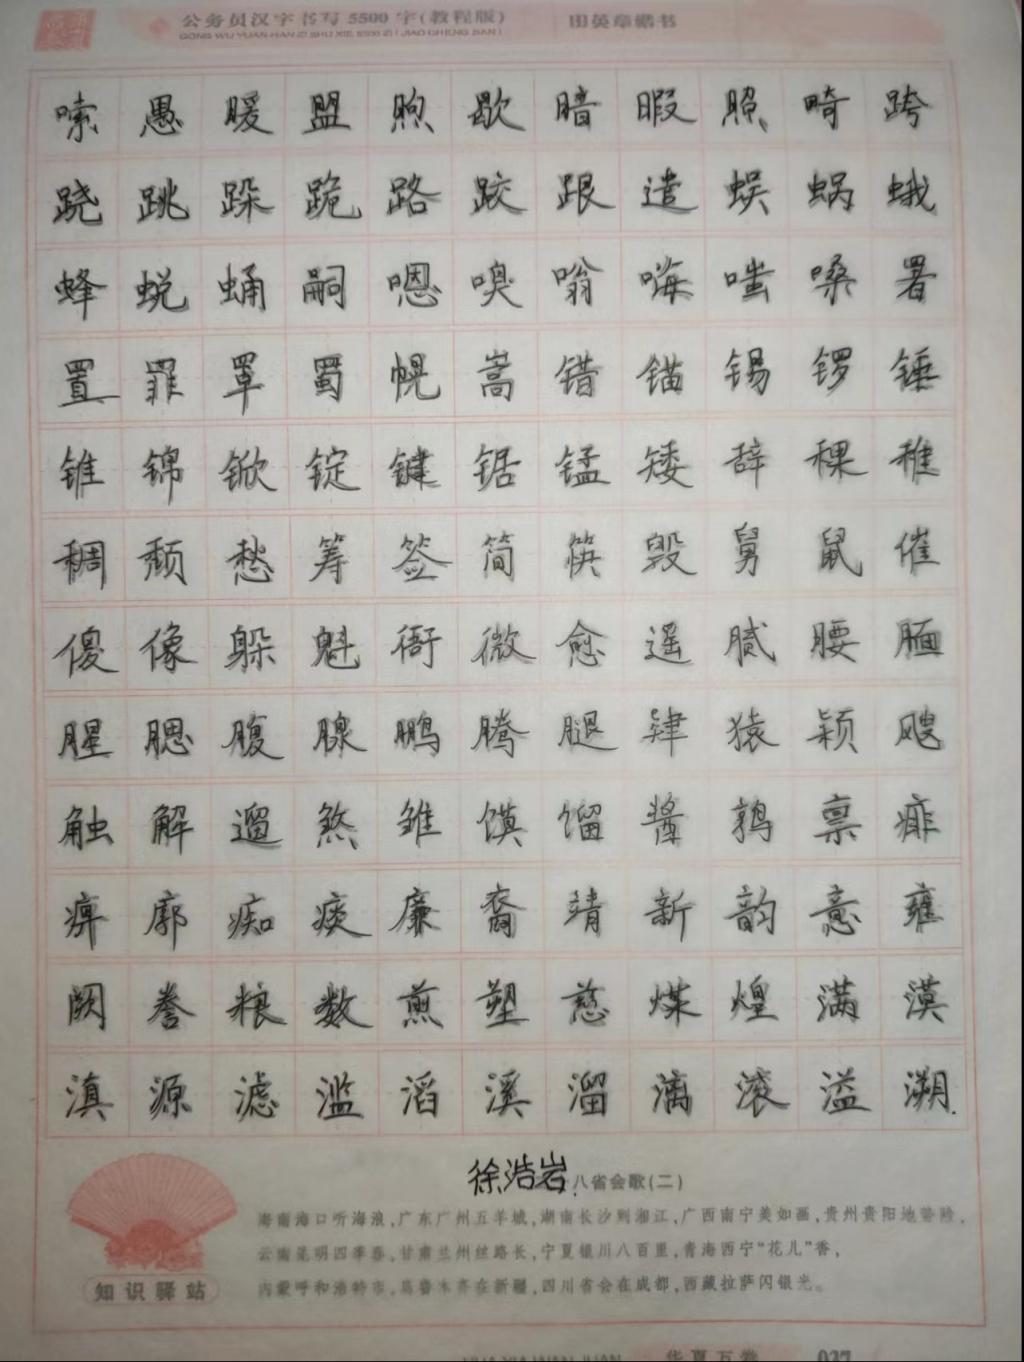 公务员汉字书写 5500 字(教程版)
田英章楷书
GONG WU YUAN HAN ZI SHU XIE 5500 ZI ( JIAO CHENG BAN )
嗦 愚 暖 盟 煦 歇 暗 暇 照 畸 跨
跷 跳 跺 跪 路 跤 跟 遣 蜈 蜗 蛾
蜂 蜕 蛹 嗣 嗯 嗅 嗡 嗨 嗤 嗓 署
置 罪 罩 蜀 幌 嵩 错 锚 锡 锣 锤
锥 锦 锨 锭 键 锯 锰 矮 辞 稞 稚
稠 颓 愁 筹 签 简 筷 毁 舅 鼠 催
傻 像 躲 魁 衙 微 愈 遥 腻 腰 腼
腥 腮 腹 腺 鹏 腾 腿 肄 猿 颖 飕
触 解 遛 煞 雏 馍 馏 酱 鹑 禀 痱
痹 廓 痴 痰 廉 裔 靖 新 韵 意 雍
阙 誊 粮 数 煎 塑 慈 煤 煌 满 漠
滇 源 滤 滥 滔 溪 溜 漓 滚 溢 溯
徐浩岩
八省会歌(二)
海南海口听海浪,广东广州五羊城,湖南长沙到湘江,广西南宁美如画,贵州贵阳地势险,
云南昆明四季春,甘肃兰州丝路长,宁夏银川八百里,青海西宁“花儿”香,
内蒙呼和浩特市,乌鲁木齐在新疆,四川省会在成都,西藏拉萨闪银光。
知识驿站
HUA XIA WAN JUAN
华夏万卷
037